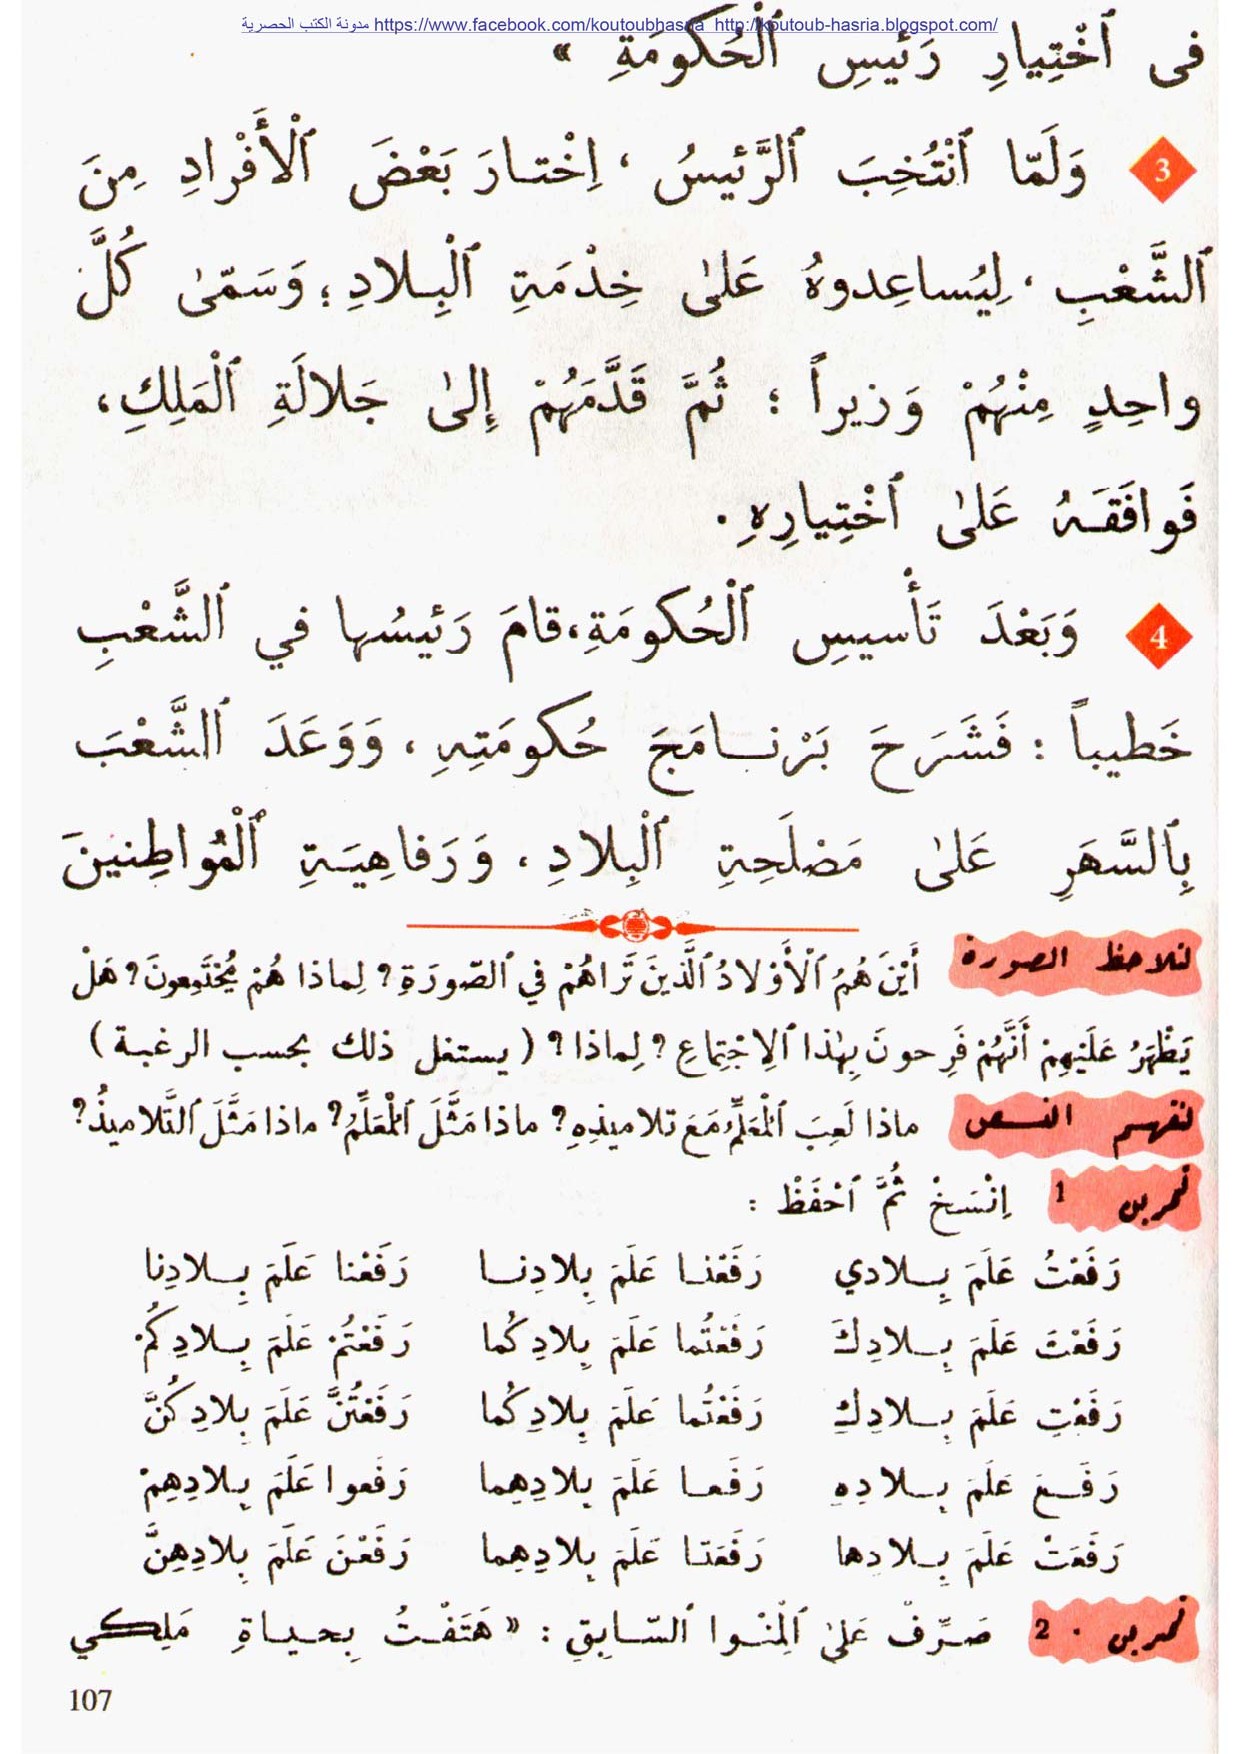 مدونة الكتب الحصرية https://www.facebook.com/koutoubhasria http://koutoub-hasria.blogspot.com/
فى ٱخْتِيارِ رَئيسِ ٱلْحُكومَةِ »
3 وَلَمّا ٱنْتُخِبَ ٱلرَّئيسُ ، إِخْتـارَ بَعْضَ ٱلْأَفْرادِ مِنَ
ٱلشَّعْبِ ، لِيُساعِدوهُ عَلىٰ خِدْمَةِ ٱلْبِـلادِ ؛ وَسَمّىٰ كُلَّ
واحِدٍ مِنْهُمْ وَزيراً ؛ ثُمَّ قَدَّمَهُمْ إِلىٰ جَلالَةِ ٱلْمَلِكِ ،
فَوافَقَـهُ عَلىٰ ٱخْتِيارِهِ .
4 وَبَعْدَ تَأْسيسِ ٱلْحُكومَةِ ، قامَ رَئيسُها في ٱلشَّعْبِ
خَطيباً : فَشَرَحَ بَرْنـامَجَ حُكومَتِهِ ، وَوَعَدَ ٱلشَّعْبَ
بِٱلسَّهَرِ عَلىٰ مَصْلَحَةِ ٱلْبِلادِ ، وَرَفاهِيَـةِ ٱلْمُواطِنينَ
لنلاحظ الصورة أَيْنَ هُمُ ٱلْأَوْلادُ ٱلَّذينَ تَراهُمْ في ٱلصّورَةِ ؟ لِماذا هُمْ مُجْتَمِعونَ ؟ هَلْ
يَظْهَرُ عَلَيْهِمْ أَنَّهُمْ فَرِحونَ بِهٰذا ٱلِاجْتِماعِ ؟ لِماذا ؟ ( يستغل ذلك بحسب الرغبة )
لنفهم النـص ماذا لَعِبَ ٱلْمُعَلِّمُ مَعَ تلاميذِهِ ؟ ماذا مَثَّلَ ٱلْمُعَلِّمُ ؟ ماذا مَثَّلَ ٱلتَّلاميذُ ؟
تمرين 1 إِنْسَخْ ثُمَّ ٱحْفَظْ :
رَفَعْتُ عَلَمَ بِـلادي رَفَعْنـا عَلَمَ بِلادِنـا رَفَعْنا عَلَمَ بِـلادِنا
رَفَعْتَ عَلَمَ بِـلادِكَ رَفَعْتُما عَلَمَ بِلادِكُما رَفَعْتُمْ عَلَمَ بِـلادِكُمْ
رَفَعْتِ عَلَمَ بِـلادِكِ رَفَعْتُما عَلَمَ بِلادِكُما رَفَعْتُنَّ عَلَمَ بِلادِكُنَّ
رَفَـعَ عَلَمَ بِـلادِهِ رَفَعـا عَلَمَ بِلادِهِما رَفَعوا عَلَمَ بِلادِهِمْ
رَفَعَتْ عَلَمَ بِـلادِها رَفَعَتـا عَلَمَ بِلادِهِما رَفَعْنَ عَلَمَ بِلادِهِنَّ
تمرين . 2 صَـرِّفْ عَلىٰ ٱلْمِنْـوا ٱلسّـابِقِ : « هَتَفْـتُ بِحيـاةِ مَلِكي
107